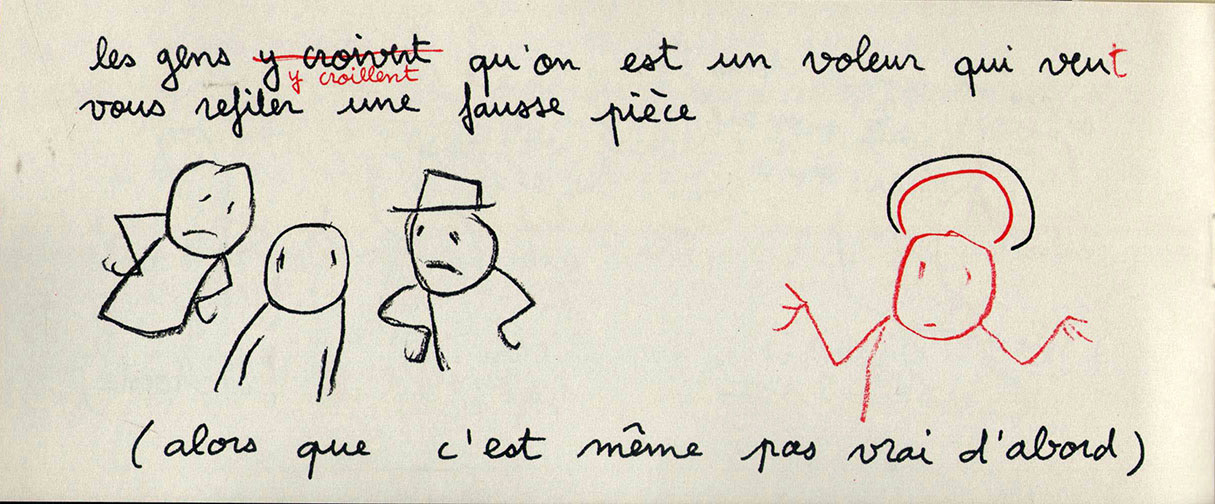 les gens y croivent qu'on est un voleur qui veut
y croillent
vous refiler une fausse pièce
(alors que c'est même pas vrai d'abord)